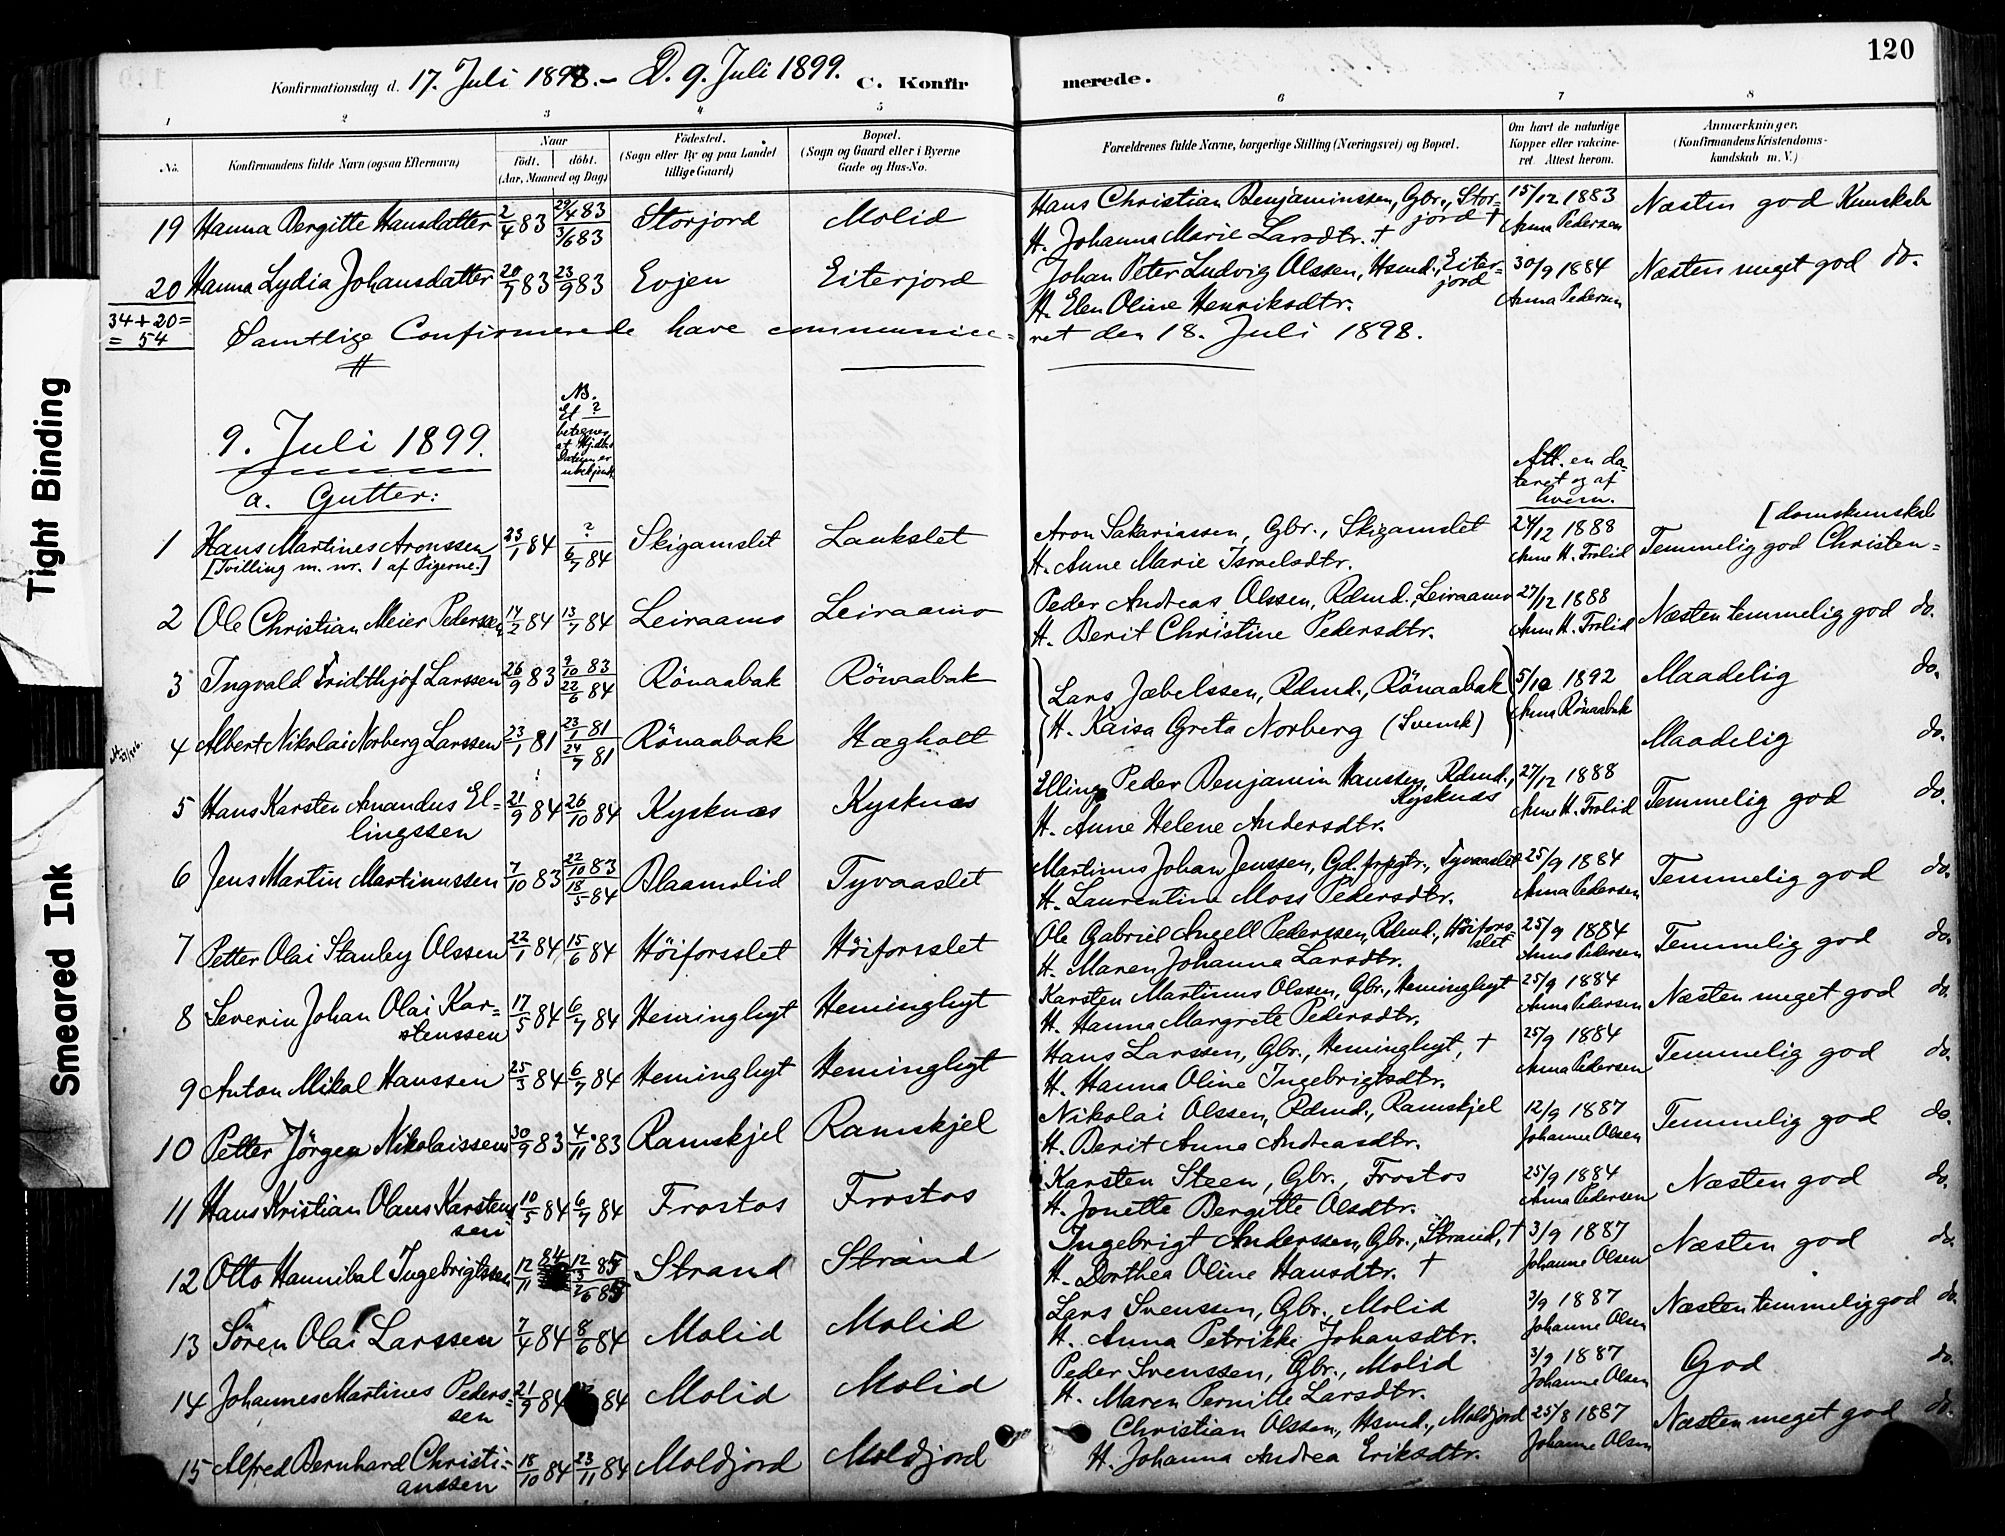 120
Konfirmationsdag d. 17. Juli 1898. – D. 9. Juli 1899. C. Konfir merede.
1 2 3 4 5 6 7 8
No. Konfirmandens fulde Navn (ogsaa Efternavn) Naar födt. döbt. (Aar, Maaned og Dag) Födested. (Sogn eller By og paa Landet tillige Gaard) Bopæl. (Sogn og Gaard eller i Byerne Gade og Hus-No. Forældrenes fulde Navne, borgerlige Stilling (Næringsvei) og Bopæl. Om havt de naturlige Kopper eller vakcineret. Attest herom. Anmærkninger. (Konfirmandens Kristendomskundskab m. V.)
19 Hanna Bergitte Hansdatter 2/4 83 29/4 83 3/6 83 Storjord Molid Hans Christian Benjaminssen, Gbr., Storjord † 15/12 1883 Næsten god Kunskab
H. Johanna Marie Larsdtr. † Anna Pedersen
20 Hanna Lydia Johansdatter 20/7 83 23/9 83 Evjen Eiterjord Johan Peter Ludvig Olssen, Husmd., Eiterjord 30/9 1884 Næsten meget god do.
H. Elen Oline Henriksdtr. Anna Pedersen
34 + 20 =
= 54
Samtlige Confirmerede have communiceret den 18. Juli 1898.
NB.
Et ?
betegner,
at Hjdbs
Datum er
ubekjendt
9. Juli 1899.
a. Gutter:
Att. en dateret og af hvem.
1 Hans Martines Aronssen 23/1 84 ? 6/7 84 Skigamslet Laukslet Aron Sakariassen, Gbr., Skigamslet 24/12 1888 Temmelig god Christen= [domskunskab
[Tvilling m. nr. 1 af Pigerne.] H. Anne Marie Israelsdtr. Anne H. Frolid
2 Ole Christian Meier Pederssen 14/2 84 13/7 84 Leiraamo Leiraamo Peder Andreas Olssen, Rdmd., Leiraamo 27/12 1888 Næsten temmelig god do.
H. Berit Christine Pedersdtr. Anne H. Frolid
3 Ingvald Fridthjof Larssen 26/9 83 9/10 83 22/6 84 Rönaabak Rönaabak Lars Jæbelssen, Rdmd., Rönaabak 5/10 1892 Maadelig do.
H. Kaisa Greta Norberg (Svensk) Anna Rönaabak
4 Albert Nikolai Norberg Larssen 23/1 81 23/1 81 24/7 81 Rönaabak Hægholt Maadelig do.
5 Hans Karsten Amandus Ellingssen 21/9 84 26/10 84 Kysknæs Kysknæs Elling Peder Benjamin Hanssen, Rdmd., Kysknæs 27/12 1888 Temmelig god do.
H. Anne Helene Andersdtr. Anne H. Frolid
6 Jens Martin Martinussen 7/10 83 22/10 83 18/5 84 Blaamolid Tyvaaslet Martinus Johan Jenssen, Gd. frpgtr., Tyvaaslet 25/9 1884 Temmelig god do.
H. Laurentine Moss Pedersdtr. Anna Pedersen
7 Petter Olai Stanley Olssen 22/1 84 15/6 84 Höiforsslet Höiforsslet Ole Gabriel Angell Pederssen, Rdmd., Höiforsslet 25/9 1884 Temmelig god do.
H. Maren Johanna Larsdtr. Anna Pedersen
8 Severin Johan Olai Karstenssen 17/5 84 6/7 84 Heminghyt Heminghyt Karsten Martinus Olssen, Gbr., Heminghyt 25/9 1884 Næsten meget god do.
H. Hanna Margrete Pedersdtr. Anna Pedersen
9 Anton Mikal Hanssen 25/3 84 6/7 84 Heminghyt Heminghyt Hans Larssen, Gbr., Heminghyt, † 25/9 1884 Temmelig god do.
H. Hanna Oline Ingebrigtsdtr. Anna Pedersen
10 Petter Jörgen Nikolaissen 30/9 83 4/11 83 Ramskjel Ramskjel Nikolai Olssen, Rdmd., Ramskjel 12/9 1887 Temmelig god do.
H. Berit Anna Andreasdtr. Johanne Olsen
11 Hans Kristian Olaus Karstenssen 10/5 84 6/7 84 Frostos Frostos Karsten Steen, Gbr., Frostos 25/9 1884 Næsten god do.
H. Jonette Bergitte Olsdtr. Anna Pedersen
12 Otto Hannibal Ingebrigtssen 12/11 84 12/3 85 7/6 85 Strand Strand Ingebrigt Anderssen, Gbr., Strand, † 3/9 1887 Næsten god do.
H. Dorthea Oline Hansdtr. † Johanne Olsen
13 Sören Olai Larssen 7/4 84 8/6 84 Molid Molid Lars Svenssen, Gbr., Molid 3/9 1887 Næsten temmelig god do.
H. Anna Petrikke Johansdtr. Johanne Olsen
14 Johannes Martines Pederssen 21/9 84 84 Molid Molid Peder Svenssen, Gbr., Molid 3/9 1887 God do.
H. Maren Pernille Larsdtr. Johanne Olsen
15 Alfred Bernhard Christianssen 18/10 84 23/11 84 Moldjord Moldjord Christian Olssen, Husmd., Moldjord 25/8 1887 Næsten meget god do.
H. Johanna Andrea Eriksdtr. Johanne Olsen
Tight Binding
Smeared Ink